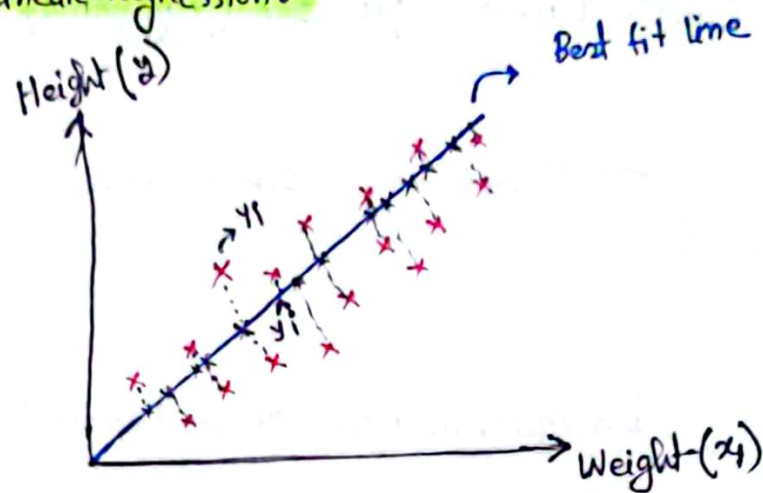 Best fit line
Height (y)
yi
yi
Weight (x1)